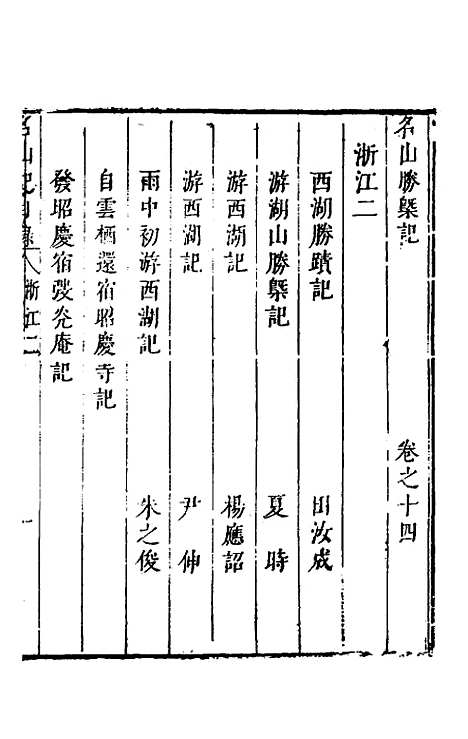 名山勝槩記 卷之十四
浙江二
西湖勝蹟記 田汝成
游湖山勝槩記 夏時
游西湖記 楊應詔
游西湖記 尹伸
雨中初游西湖記 朱之俊
自雲栖還宿昭慶寺記
發昭慶宿發光庵記
名山記目錄 浙江二 一